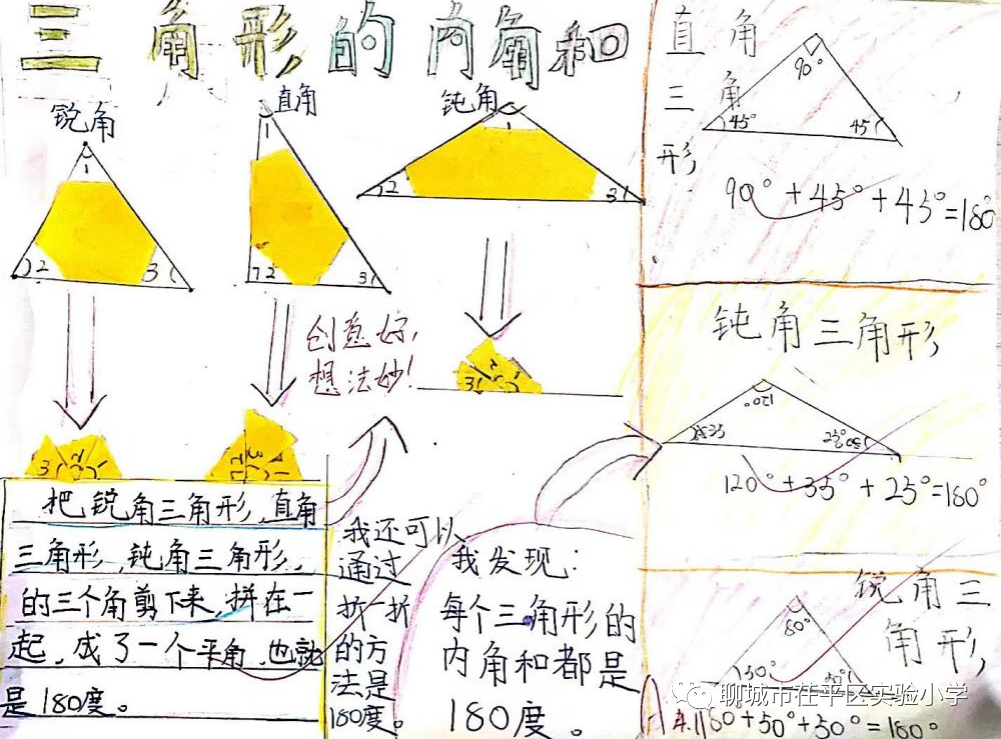 三角形的内角和
锐角
1
2
3
直角
1
2
3
钝角
1
2
3
创意好，
想法妙！
3
2
3
把锐角三角形，直角
三角形，钝角三角形，
的三个角剪下来，拼在一
起，成了一个平角，也就
是180度。
我还可以
通过
折一折
的方
法是
180度。
我发现：
每个三角形的
内角和都是
180度。
直角
三角
形
90°
45°
45
90°+45°+45°=180°
钝角三角形
120°
25°
120°+35°+25°=180°
锐角三
角形
80°
80+50°+50°=180°
聊城市茌平区实验小学